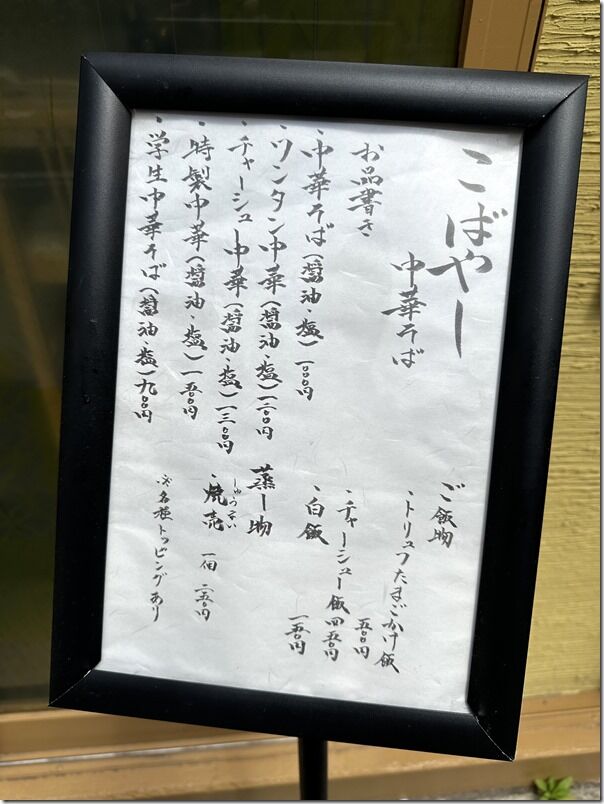 こばやし
中華そば
お品書き
・中華そば(醤油・塩)一〇〇〇円
・ワンタン中華(醤油・塩)一二〇〇円
・チャーシュー中華(醤油・塩)一三〇〇円
・特製中華(醤油・塩)一五〇〇円
・学生中華そば(醤油・塩)九〇〇円
ご飯物
・トリュフたまごかけ飯 五〇〇円
・チャーシュー飯 四五〇円
・白飯 一五〇円
蒸し物
・焼売 一個 二五〇円
しゅうまい
※各種トッピングあり